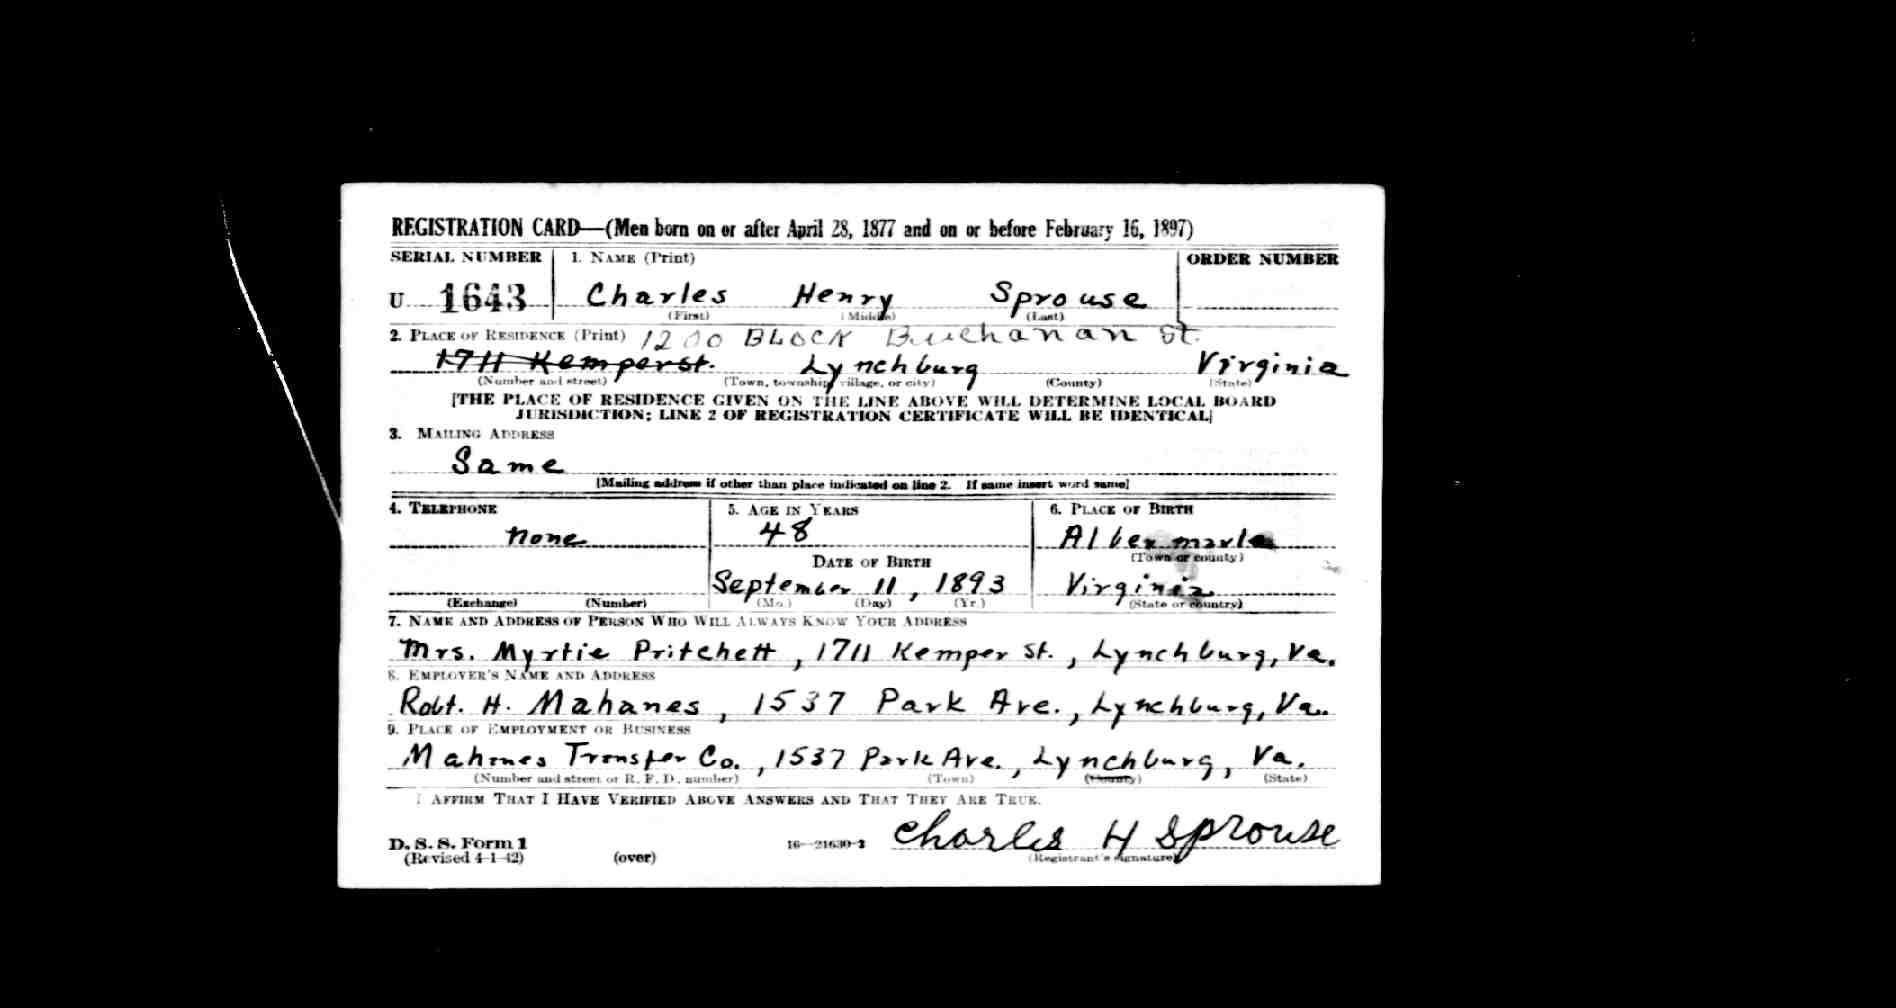 REGISTRATION CARD—(Men born on or after April 28, 1877 and on or before February 16, 1897)
SERIAL NUMBER 1. NAME (Print) ORDER NUMBER
U 1643 Charles Henry Sprouse
(First) (Middle) (Last)
2. PLACE OF RESIDENCE (Print) 1200 BLOCK Buchanan St.
1711 Kemper st. Lynchburg Virginia
(Number and street) (Town, township, village, or city) (County) (State)
[THE PLACE OF RESIDENCE GIVEN ON THE LINE ABOVE WILL DETERMINE LOCAL BOARD
JURISDICTION; LINE 2 OF REGISTRATION CERTIFICATE WILL BE IDENTICAL]
3. MAILING ADDRESS
Same
[Mailing address if other than place indicated on line 2. If same insert word same]
4. TELEPHONE 5. AGE IN YEARS 6. PLACE OF BIRTH
none 48 Albermarle
DATE OF BIRTH (Town or county)
September 11, 1893 Virginia
(Exchange) (Number) (Mo.) (Day) (Yr.) (State or country)
7. NAME AND ADDRESS OF PERSON WHO WILL ALWAYS KNOW YOUR ADDRESS
Mrs. Myrtie Pritchett, 1711 Kemper St., Lynchburg, Va.
8. EMPLOYER'S NAME AND ADDRESS
Robt. H. Mahanes, 1537 Park Ave., Lynchburg, Va.
9. PLACE OF EMPLOYMENT OR BUSINESS
Mahanes Transfer Co., 1537 Park Ave., Lynchburg, Va.
(Number and street or R. F. D. number) (Town) (County) (State)
I AFFIRM THAT I HAVE VERIFIED ABOVE ANSWERS AND THAT THEY ARE TRUE.
D. S. S. Form 1 16—21630-2 Charles H Sprouse
(Revised 4-1-42) (over) (Registrant's signature)